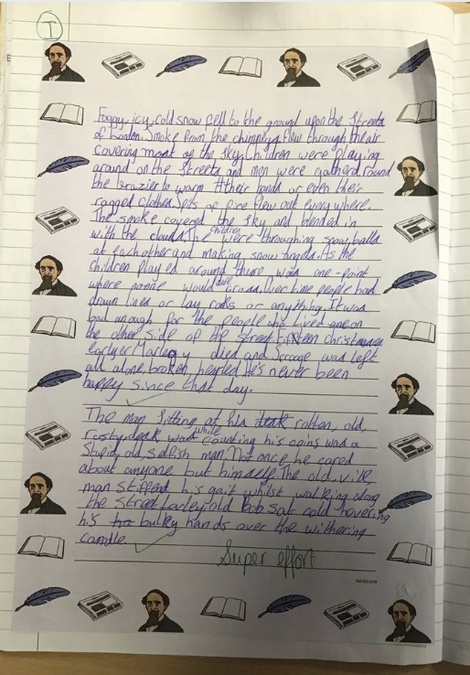 T
Foggy, icy, cold snow fell to the ground upon the streets
of London. Smoke from the chimneys flew through the air
covering most of the sky. Children were playing
around on the streets and men were gathered round
the brazier to warm their hands or even their
ragged clothes. of fire flew out everywhere.
The smoke covered the sky and blended in
with the clouds. The children were throughing snow balls
at each other and making snow angels. As the
children played around there was one point
where people would over time people had
drawn lines or lay rocks or anything. It was
bad enough for the people who lived one on
the other side of the street. Fifteen christmases
earlyer Marley died and Scrooge was left
all alone, broken hearted. He's never been
happy since that day.
The man sitting at his desk rotten, old,
rusty desk while counting his coins was a
stupid, old, selfish man. Not once he cared
about anyone but himself. The old, vile
man stiffend his gait whilst walking along
the street. old bob sat cold hovering
his bulky hands over the withering
candle.
Super effort